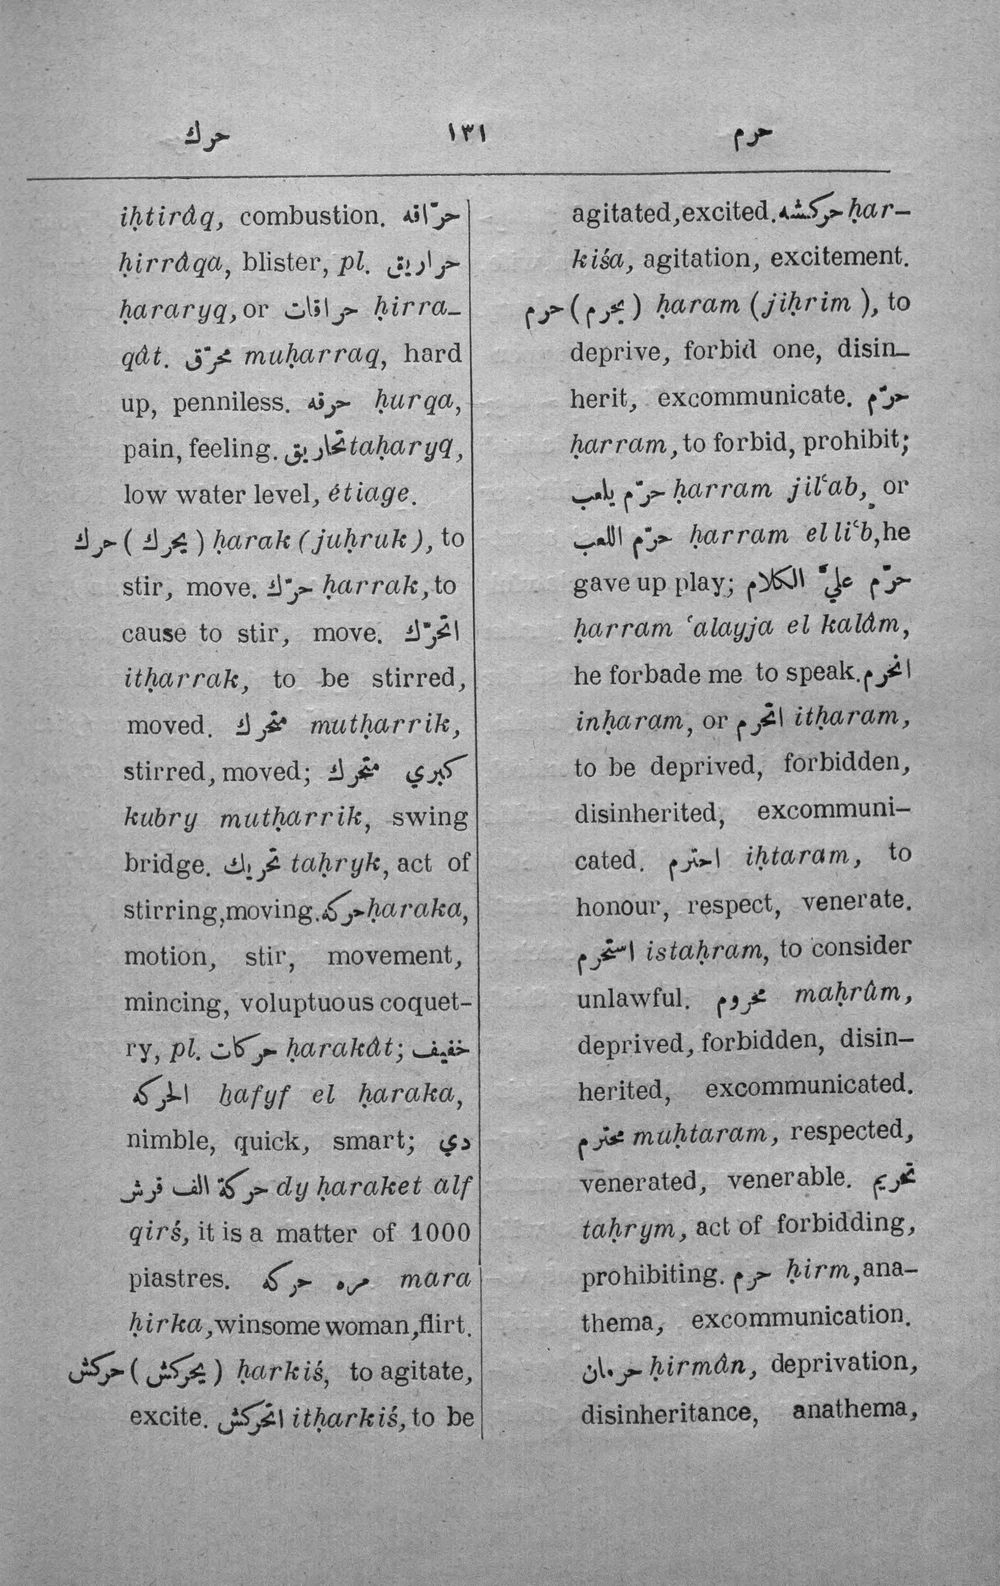 حرك ١٣١ حرم
iḥtirâq, combustion. حرّاقه
ḥirrâqa, blister, pl. حراريق
ḥararyq, or حراقات ḥirra-
qât. محرّق muḥarraq, hard
up, penniless. حرقه ḥurqa,
pain, feeling. تحاريق taḥaryq,
low water level, étiage.
حرك (يحرك) ḥarak (juḥruk), to
stir, move. حرّك ḥarrak, to
cause to stir, move. اتحرّك
itḥarrak, to be stirred,
moved. متحرك mutḥarrik,
stirred, moved; كبري متحرك
kubry mutḥarrik, swing
bridge. تحريك taḥryk, act of
stirring, moving. حركه ḥaraka,
motion, stir, movement,
mincing, voluptuous coquet-
ry, pl. حركات ḥarakât; خفيف
الحركه ḫafyf el ḥaraka,
nimble, quick, smart; دي
حركة الف قرش dy ḥaraket alf
qirś, it is a matter of 1000
piastres. مره حركه mara
ḥirka, winsome woman, flirt.
حركش (يحركش) ḥarkiś, to agitate,
excite. اتحركش itḥarkiś, to be
agitated, excited. حركشه ḥar-
kiśa, agitation, excitement.
حرم (يحرم) ḥaram (jiḥrim), to
deprive, forbid one, disin-
herit, excommunicate. حرّم
ḥarram, to forbid, prohibit;
حرّم يلعب ḥarram jilʿab, or
حرّم اللعب ḥarram el liʿb, he
gave up play; حرّم عليّ الكلام
ḥarram ʿalayja el kalâm,
he forbade me to speak. انحرم
inḥaram, or اتحرم itḥaram,
to be deprived, forbidden,
disinherited, excommuni-
cated. احترم iḥtaram, to
honour, respect, venerate.
استحرم istaḥram, to consider
unlawful. محروم maḥrûm,
deprived, forbidden, disin-
herited, excommunicated.
محترم muḥtaram, respected,
venerated, venerable. تحريم
taḥrym, act of forbidding,
prohibiting. حرم ḥirm, ana-
thema, excommunication.
حرمان ḥirmân, deprivation,
disinheritance, anathema,